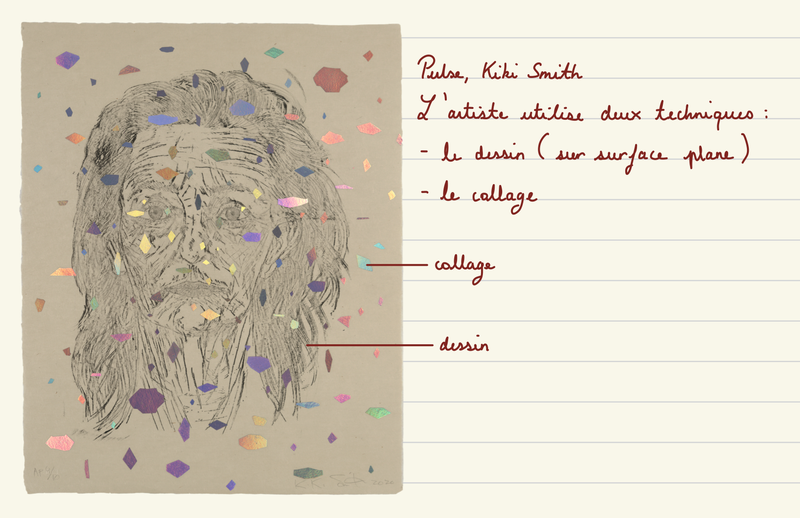 Pulse, Kiki Smith
L'artiste utilise deux techniques :
- le dessin (sur surface plane)
- le collage
collage
dessin